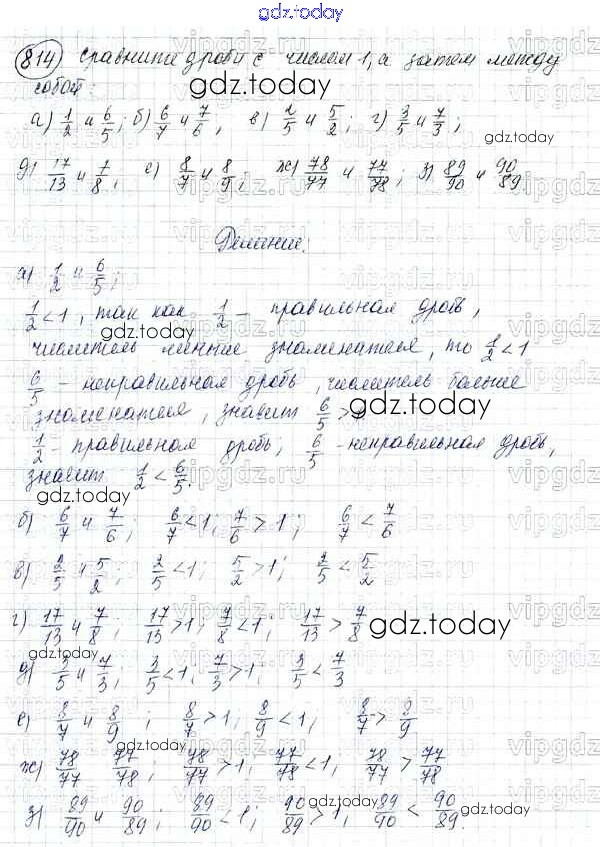 gdz.today
814) Сравните дроби с числом 1, а затем между
собой:
gdz.today
а) 1/2 и 6/5; б) 6/7 и 7/6, в) 2/5 и 5/2; г) 3/5 и 7/3;
gdz.today
д) 17/13 и 7/8, е) 8/7 и 8/9; ж) 78/77 и 77/78; з) 89/90 и 90/89
gdz.today
Решение:
а) 1/2 и 6/5;
1/2 < 1, так как 1/2 - правильная дробь,
gdz.today
числитель меньше знаменателя, то 1/2 < 1
6/5 - неправильная дробь, числитель больше
знаменателя, значит 6/5 >
gdz.today
1/2 - правильная дробь, 6/5 - неправильная дробь,
значит 1/2 < 6/5.
gdz.today
б) 6/7 и 7/6; 6/7 < 1; 7/6 > 1; 6/7 < 7/6
в) 2/5 и 5/2; 2/5 < 1; 5/2 > 1; 2/5 < 5/2
г) 17/13 и 7/8; 17/13 > 1; 7/8 < 1; 17/13 > 7/8
gdz.today
д) 3/5 и 7/3; 3/5 < 1, 7/3 > 1; 3/5 < 7/3
gdz.today
е) 8/7 и 8/9; 8/7 > 1; 8/9 < 1; 8/7 > 8/9
gdz.today
ж) 78/77 77/78; 78/77 > 1, 77/78 < 1, 78/77 > 77/78
з) 89/90 и 90/89; 89/90 < 1; 90/89 > 1; 89/90 < 90/89.
gdz.today
gdz.today
gdz.today
vipgdz.ru